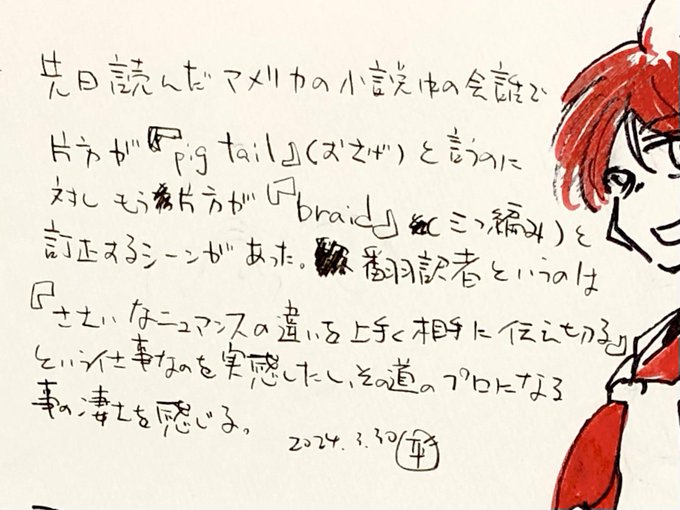 先日読んだアメリカの小説中の会話で
片方が『pig tail』(おさげ)と言うのに
対しもう片方が『braid』(三つ編み)と
訂正するシーンがあった。翻訳者というのは
『ささいなニュアンスの違いを上手く相手に伝え切る』
という仕事なのを実感したし、その道のプロになる
事の凄さを感じる。
2024.3.30